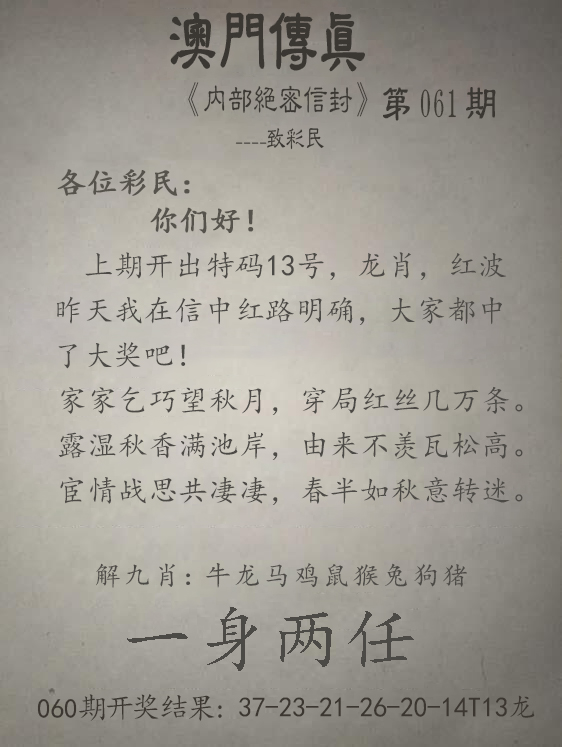 澳門傳真
《内部絕密信封》第061期
----致彩民
各位彩民：
你们好！
上期开出特码13号，龙肖，红波
昨天我在信中红路明确，大家都中
了大奖吧！
家家乞巧望秋月，穿局红丝几万条。
露湿秋香满池岸，由来不羡瓦松高。
宦情战思共凄凄，春半如秋意转迷。
解九肖：牛龙马鸡鼠猴兔狗猪
一身两任
060期开奖结果：37-23-21-26-20-14T13龙